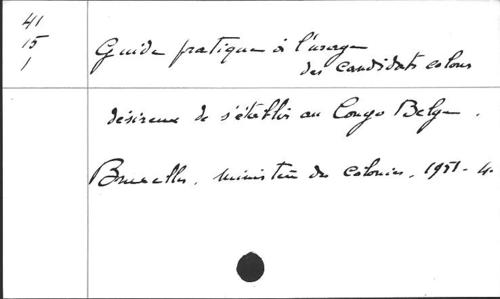 41
15
1
Guide pratique à l'usage
des candidats colons
désireux de s'établir au Congo Belge.
Bruxelles, Ministère des Colonies, 1951. 4.